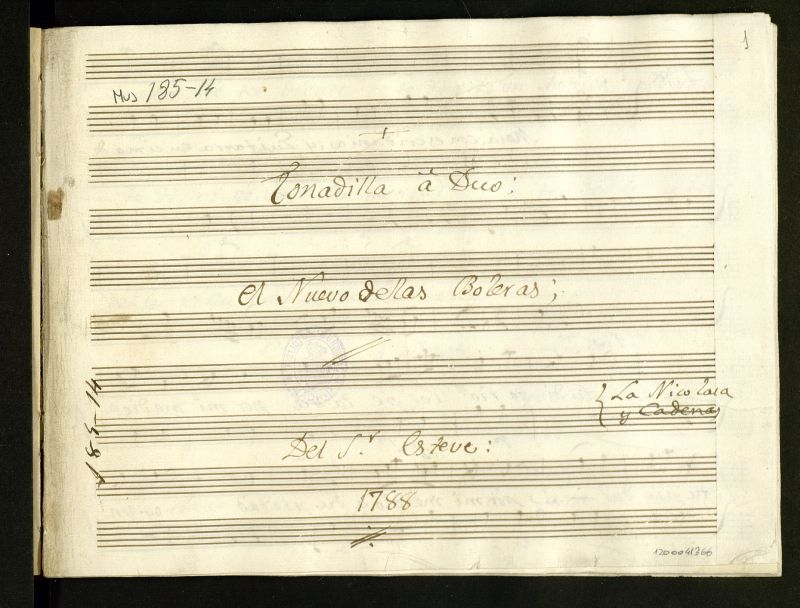 1
Mus 185-14
Tonadilla â Duo:
el Nuevo de las Boleras;
185-14
{ La Nicolasa
y Cadenas
Del S.r Esteve:
1788
1200041366